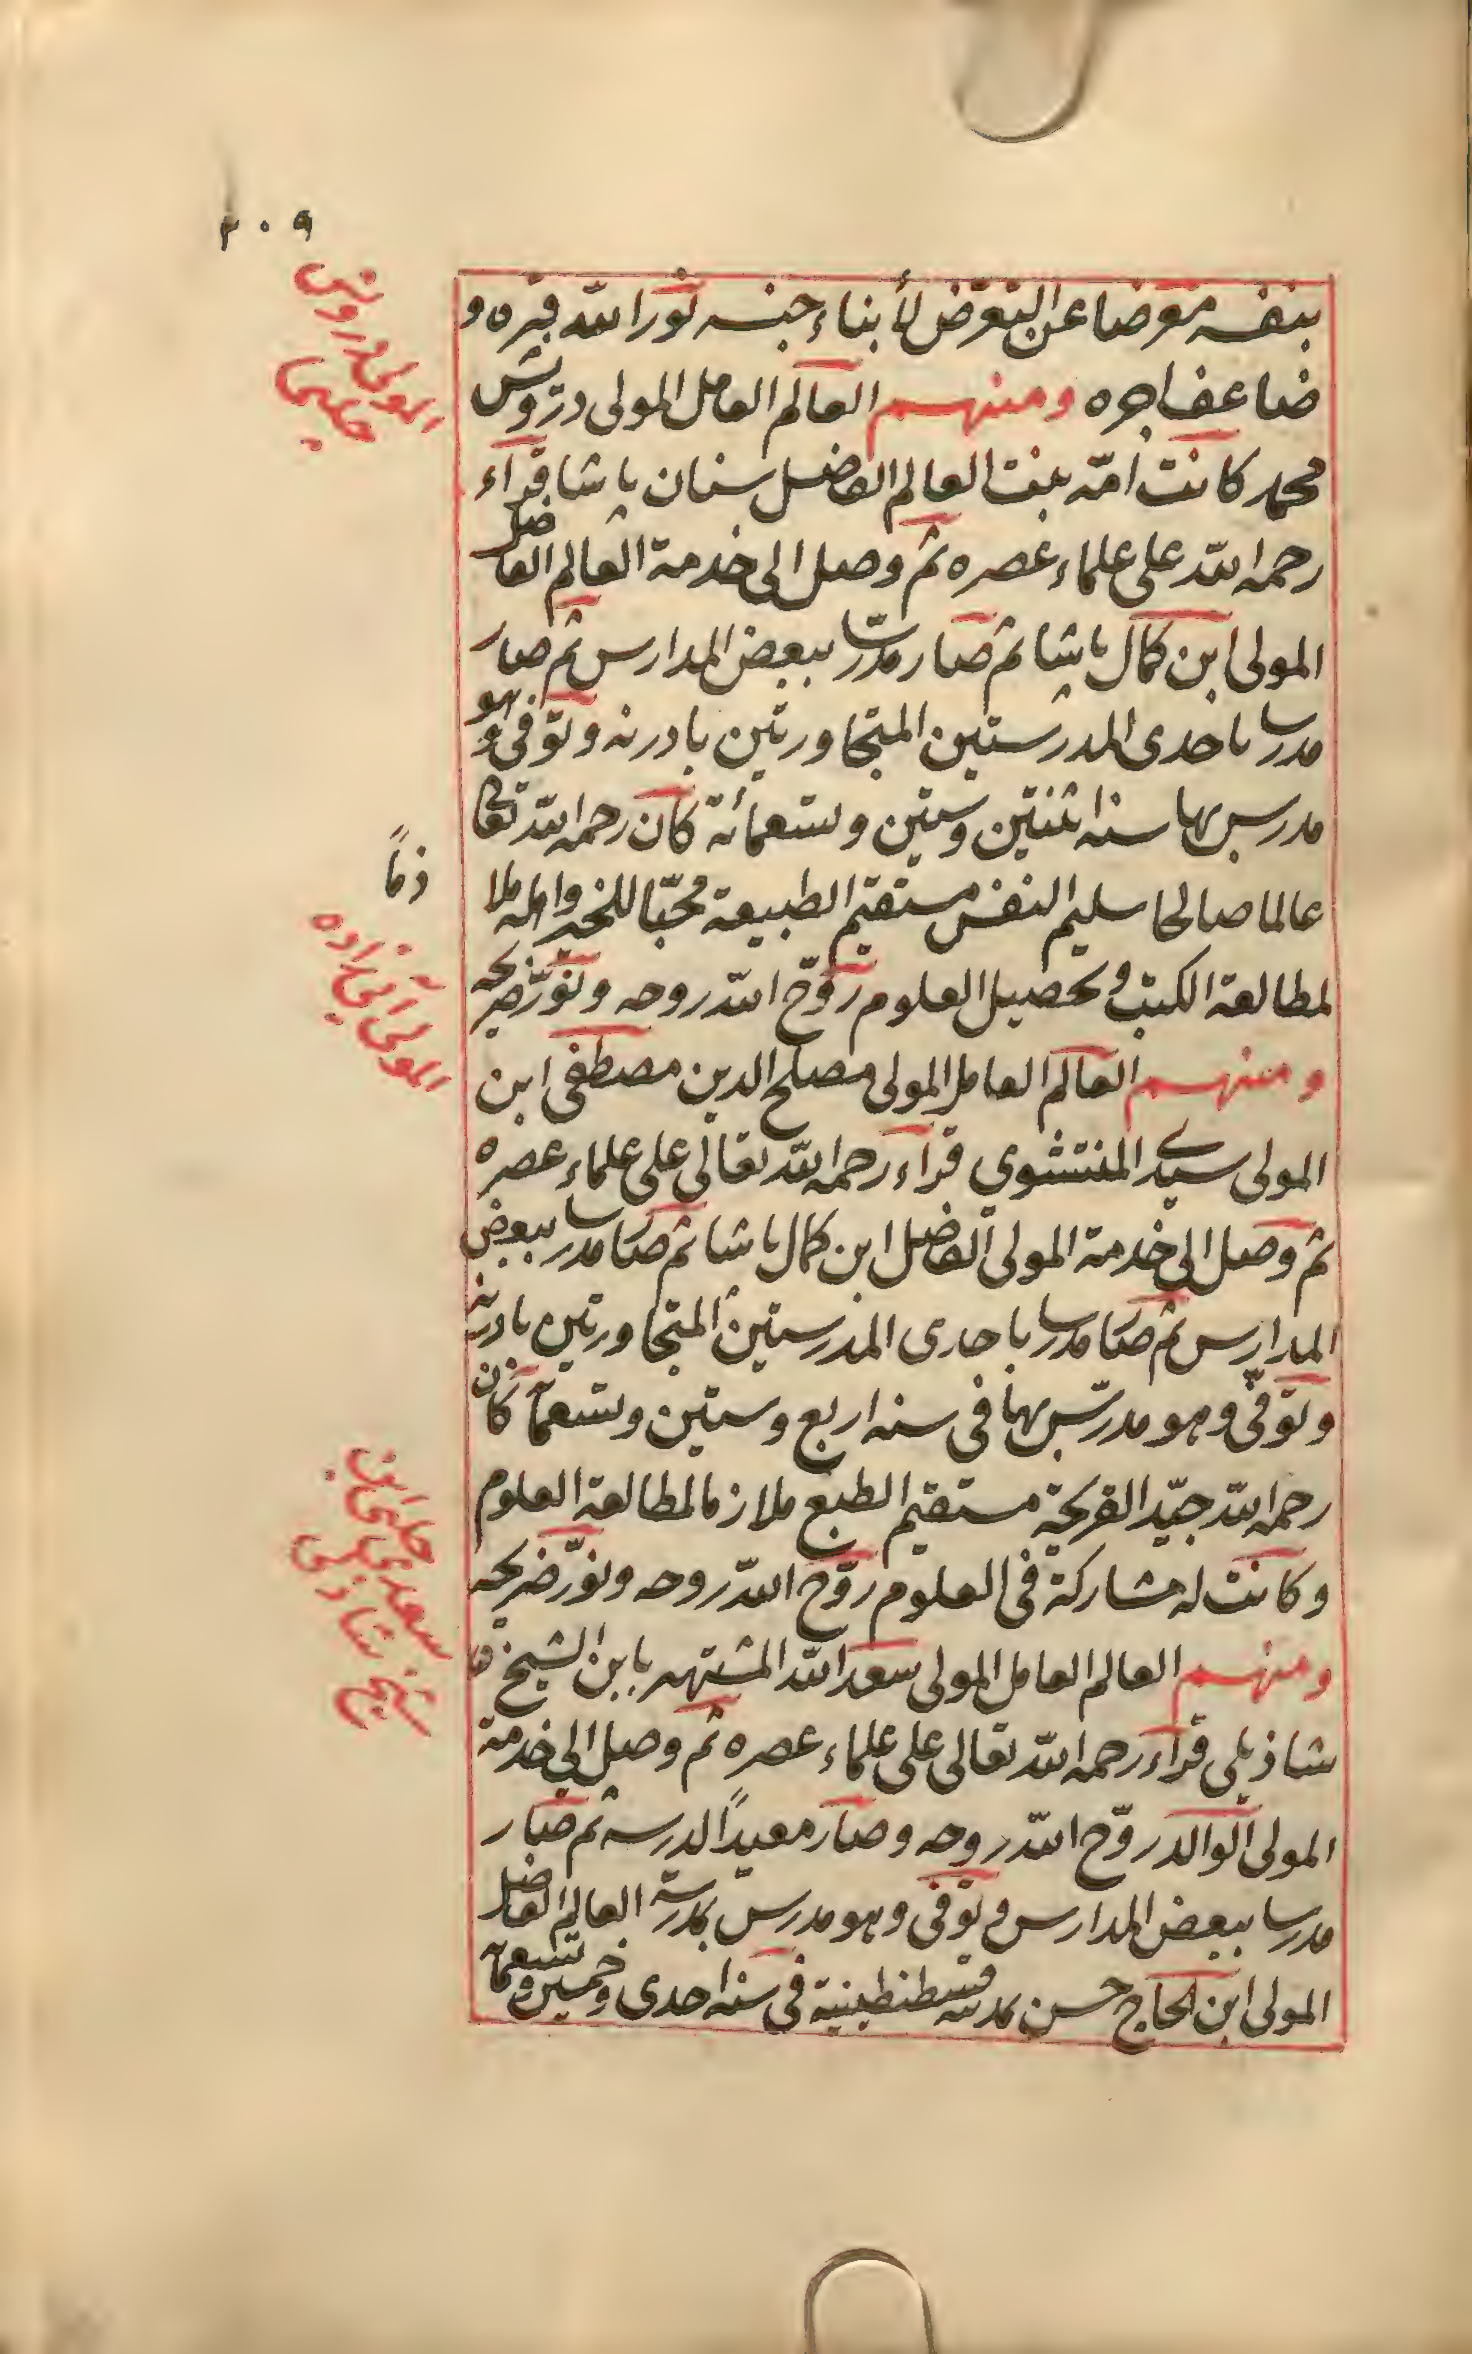 ٢٠٩
بنفسه معرضا عن التعرّض لأبناء جنسه نور الله قبره و
ضاعف اجره ومنهم العالم العامل المولى درويش
محمد كانت امّه بنت العالم الفاضل سنان پاشا قرأ
رحمه الله على علماء عصره ثم وصل الى خدمة العالم الفاضل
المولى ابن كمال پاشا ثم صار مدرّسا ببعض المدارس ثم صار
مدرسا باحدى المدرستين المتجاورتين بادرنه وتوفى وهو
مدرس بها سنه اثنتين وستين وتسعمائة كان رحمه الله تعالى
عالما صالحا سليم النفس مستقيم الطبيعة محبّا للخير واهله ملا
زماً
لمطالعة الكتب وتحصيل العلوم روّح الله روحه ونوّر ضريحه
ومنهم العالم العامل المولى مصلح الدين مصطفى ابن
المولى سيدى المنتشوي قرأ رحمه الله تعالى على علماء عصره
ثم وصل الى خدمة المولى الفاضل ابن كمال پاشا ثم صار مدرسا ببعض
المدارس ثم صار مدرسا باحدى المدرستين المتجاورتين بادرنه
وتوفّى وهو مدرّس بها فى سنه اربع وستين وتسعمائة كان
رحمه الله جيّد القريحة مستقيم الطبع ملازما لمطالعة العلوم
وكانت له مشاركة فى العلوم روّح الله روحه ونوّر ضريحه
ومنهم العالم العامل المولى سعد الله المشتهر بابن الشيخ
شاذيلى قرأ رحمه الله تعالى على علماء عصره ثم وصل الى خدمة
المولى الوالد روّح الله روحه وصار معيداً لدرسه ثم صار
مدرسا ببعض المدارس وتوفى وهو مدرس بمدرسة العالم الفاضل
المولى ابن الحاج حسن بمدينه قسطنطينية فى سنه احدى وخمسين وتسعمائة
المولى درويش
چلبى
سعدى چلبى ابن
شيخ شاذيلى